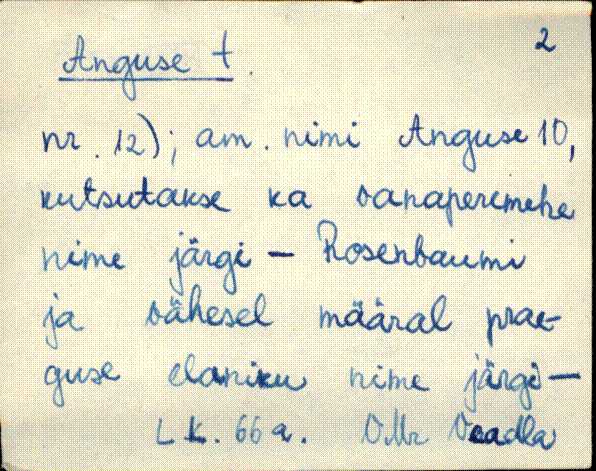 2
Anguse t.
nr. 12); am. nimi Anguse 10,
kutsutakse ka vanaperemehe
nime järgi - Rosenbaumi
ja vähesel määral prae-
guse elaniku nime järgi -
Lk. 66a. VMr Veadla